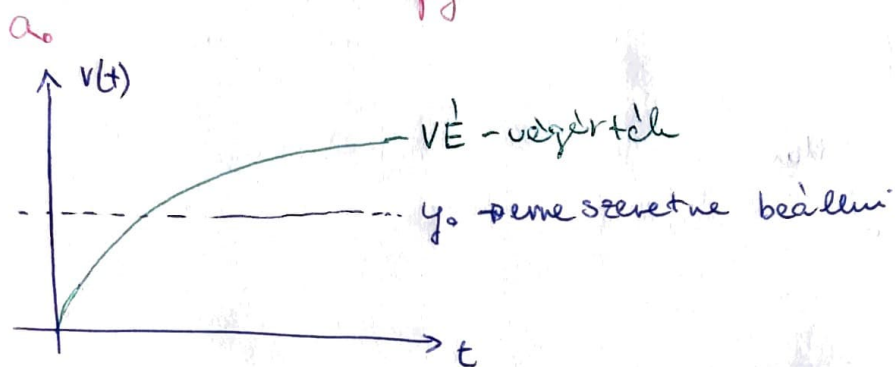 a₀
v(t)
VÉ - végérték
y₀ → erre szeretne beállni
t